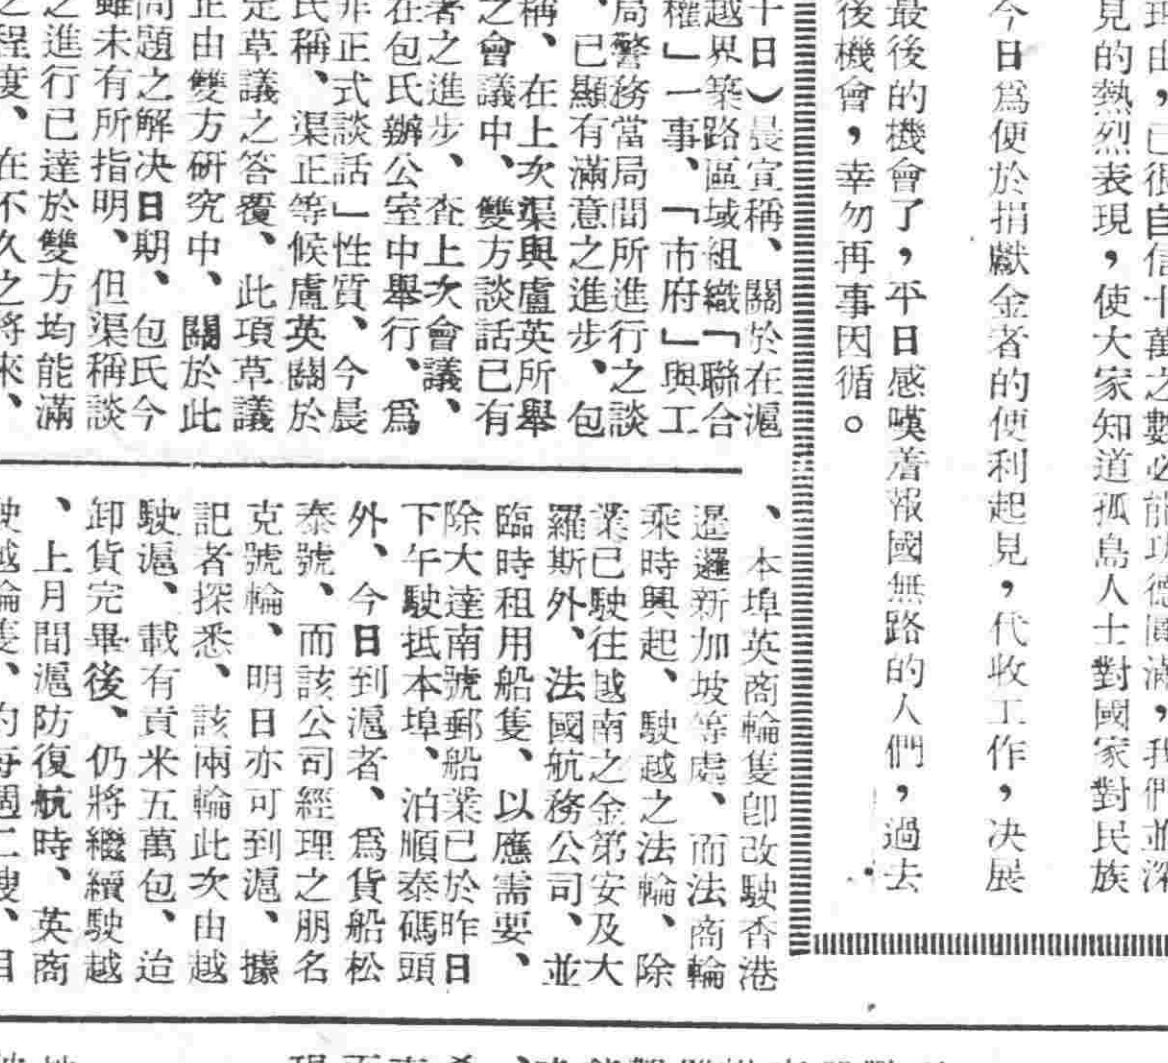 見的熱烈表現，使大家知道孤島人士對國家對民族
今日爲便於捐獻金者的便利起見，代收工作，决展
最後的機會了，平日感嘆着報國無路的人們，過去
後機會，幸勿再事因循。
十日）晨宣稱、關於在滬
越界築路區域組織「聯合
權」一事、「市府」與工
局警務當局間所進行之談
、已顯有滿意之進步、包
稱、在上次渠與盧英所舉
之會議中、雙方談話已有
著之進步、查上次會議、
在包氏辦公室中舉行、爲
非正式談話」性質、今晨
氏稱、渠正等候盧英關於
定草議之答覆、此項草議
正由雙方研究中、關於此
問題之解决日期、包氏今
雖未有所指明、但渠稱談
之進行已達於雙方均能滿
之程度、在不久之將來、
、本埠英商輪隻卽改駛香港
暹邏新加坡等處、而法商輪
乘時興起、駛越之法輪、除
業已駛往越南之金第安及大
羅斯外、法國航務公司、並
臨時租用船隻、以應需要、
除大達南號郵船業已於昨日
下午駛抵本埠、泊順泰碼頭
外、今日到滬者、爲貨船松
泰號、而該公司經理之朋名
克號輪、明日亦可到滬、據
記者探悉、該兩輪此次由越
駛滬、載有貢米五萬包、迨
卸貨完畢後、仍將繼續駛越
、上月間滬防復航時、英商